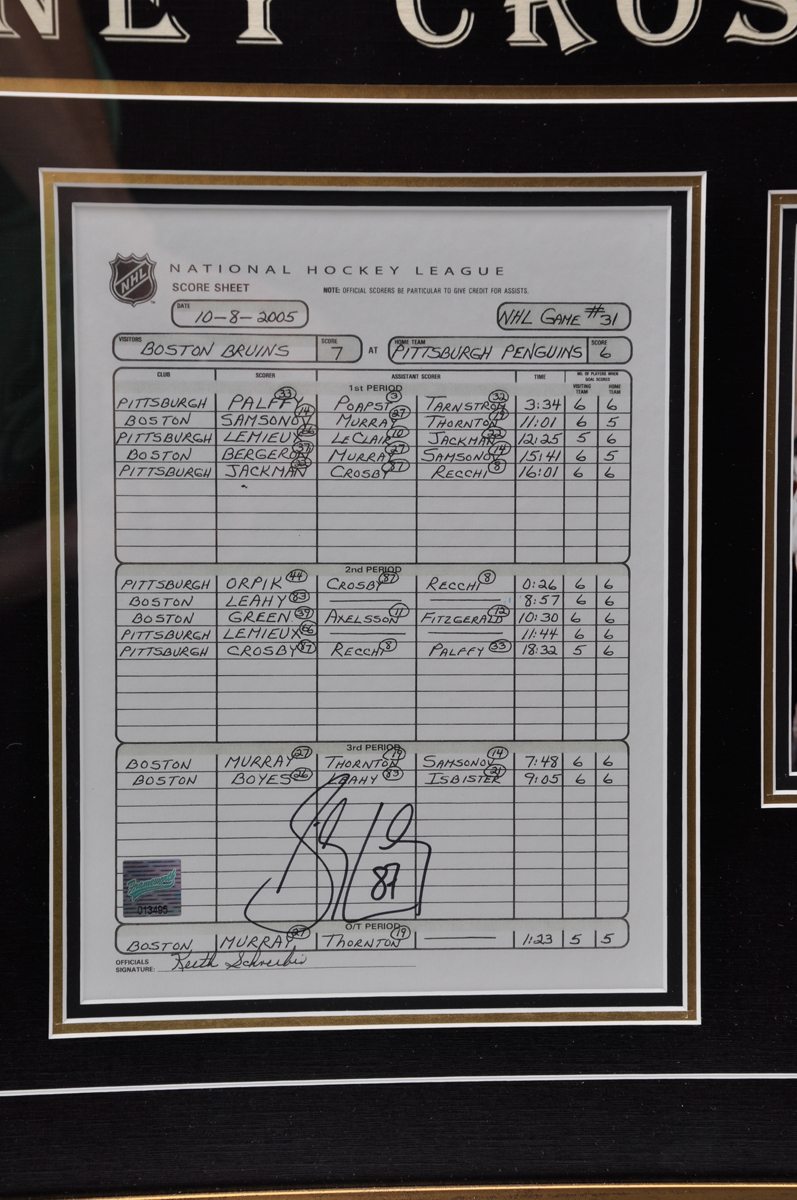 NEY CROS
NHL
NATIONAL HOCKEY LEAGUE
SCORE SHEET NOTE: OFFICIAL SCORERS BE PARTICULAR TO GIVE CREDIT FOR ASSISTS.
DATE 10-8-2005 NHL GAME #31
VISITORS BOSTON BRUINS SCORE 7 AT HOME TEAM PITTSBURGH PENGUINS SCORE 6
CLUB SCORER ASSISTANT SCORER TIME NO. OF PLAYERS WHEN GOAL SCORED
VISITING TEAM HOME TEAM
1st PERIOD
PITTSBURGH PALFFY 33 POAPST 3 TARNSTROM 32 3:34 6 6
BOSTON SAMSONOV 14 MURRAY 27 THORNTON 19 11:01 6 5
PITTSBURGH LEMIEUX 66 LECLAIR 10 JACKMAN 22 12:25 5 6
BOSTON BERGERON 37 MURRAY 27 SAMSONOV 14 15:41 6 5
PITTSBURGH JACKMAN 22 CROSBY 87 RECCHI 8 16:01 6 6
2nd PERIOD
PITTSBURGH ORPIK 44 CROSBY 87 RECCHI 8 0:26 6 6
BOSTON LEAHY 83 8:57 6 6
BOSTON GREEN 39 AXELSSON 11 FITZGERALD 12 10:30 6 6
PITTSBURGH LEMIEUX 66 11:44 6 6
PITTSBURGH CROSBY 87 RECCHI 8 PALFFY 33 18:32 5 6
3rd PERIOD
BOSTON MURRAY 27 THORNTON 19 SAMSONOV 14 7:48 6 6
BOSTON BOYES 26 LEAHY 83 ISBISTER 21 9:05 6 6
87
Frameworth
013495
O/T PERIOD
BOSTON MURRAY 27 THORNTON 19 1:23 5 5
OFFICIALS
SIGNATURE: Keith Schreiber